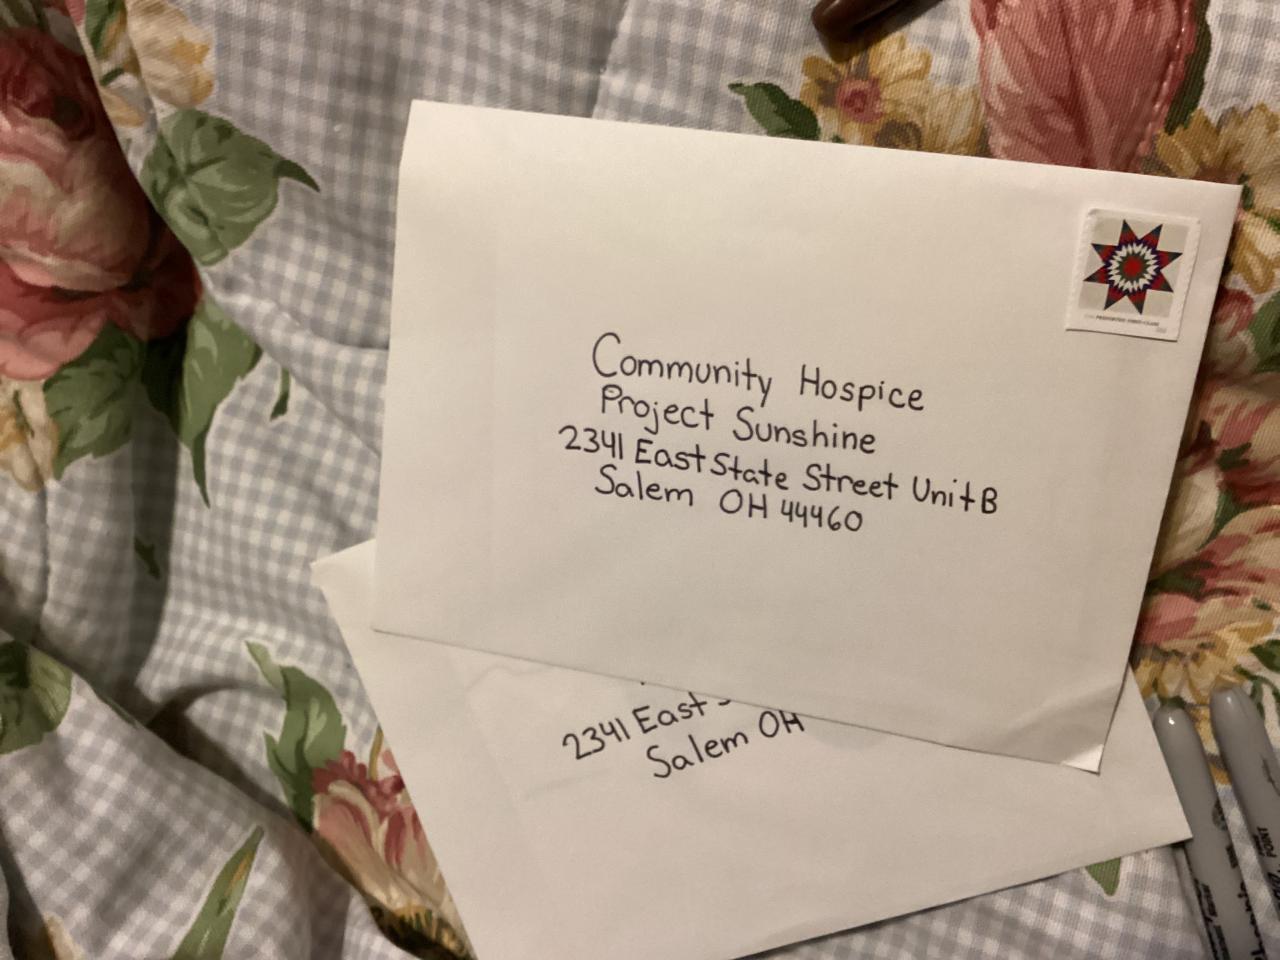 Community Hospice
Project Sunshine
2341 East State Street Unit B
Salem OH 44460
2341 East
Salem OH
POINT